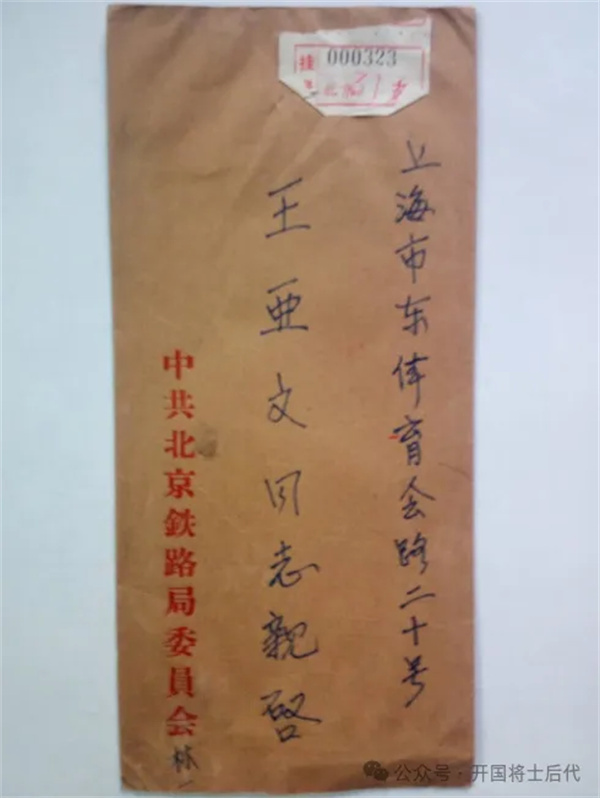 挂 000323
北京 31 支
上海市东体育会路二十号
王亜文同志親啓
中共北京鉄路局委員会林
公众号·开国将士后代